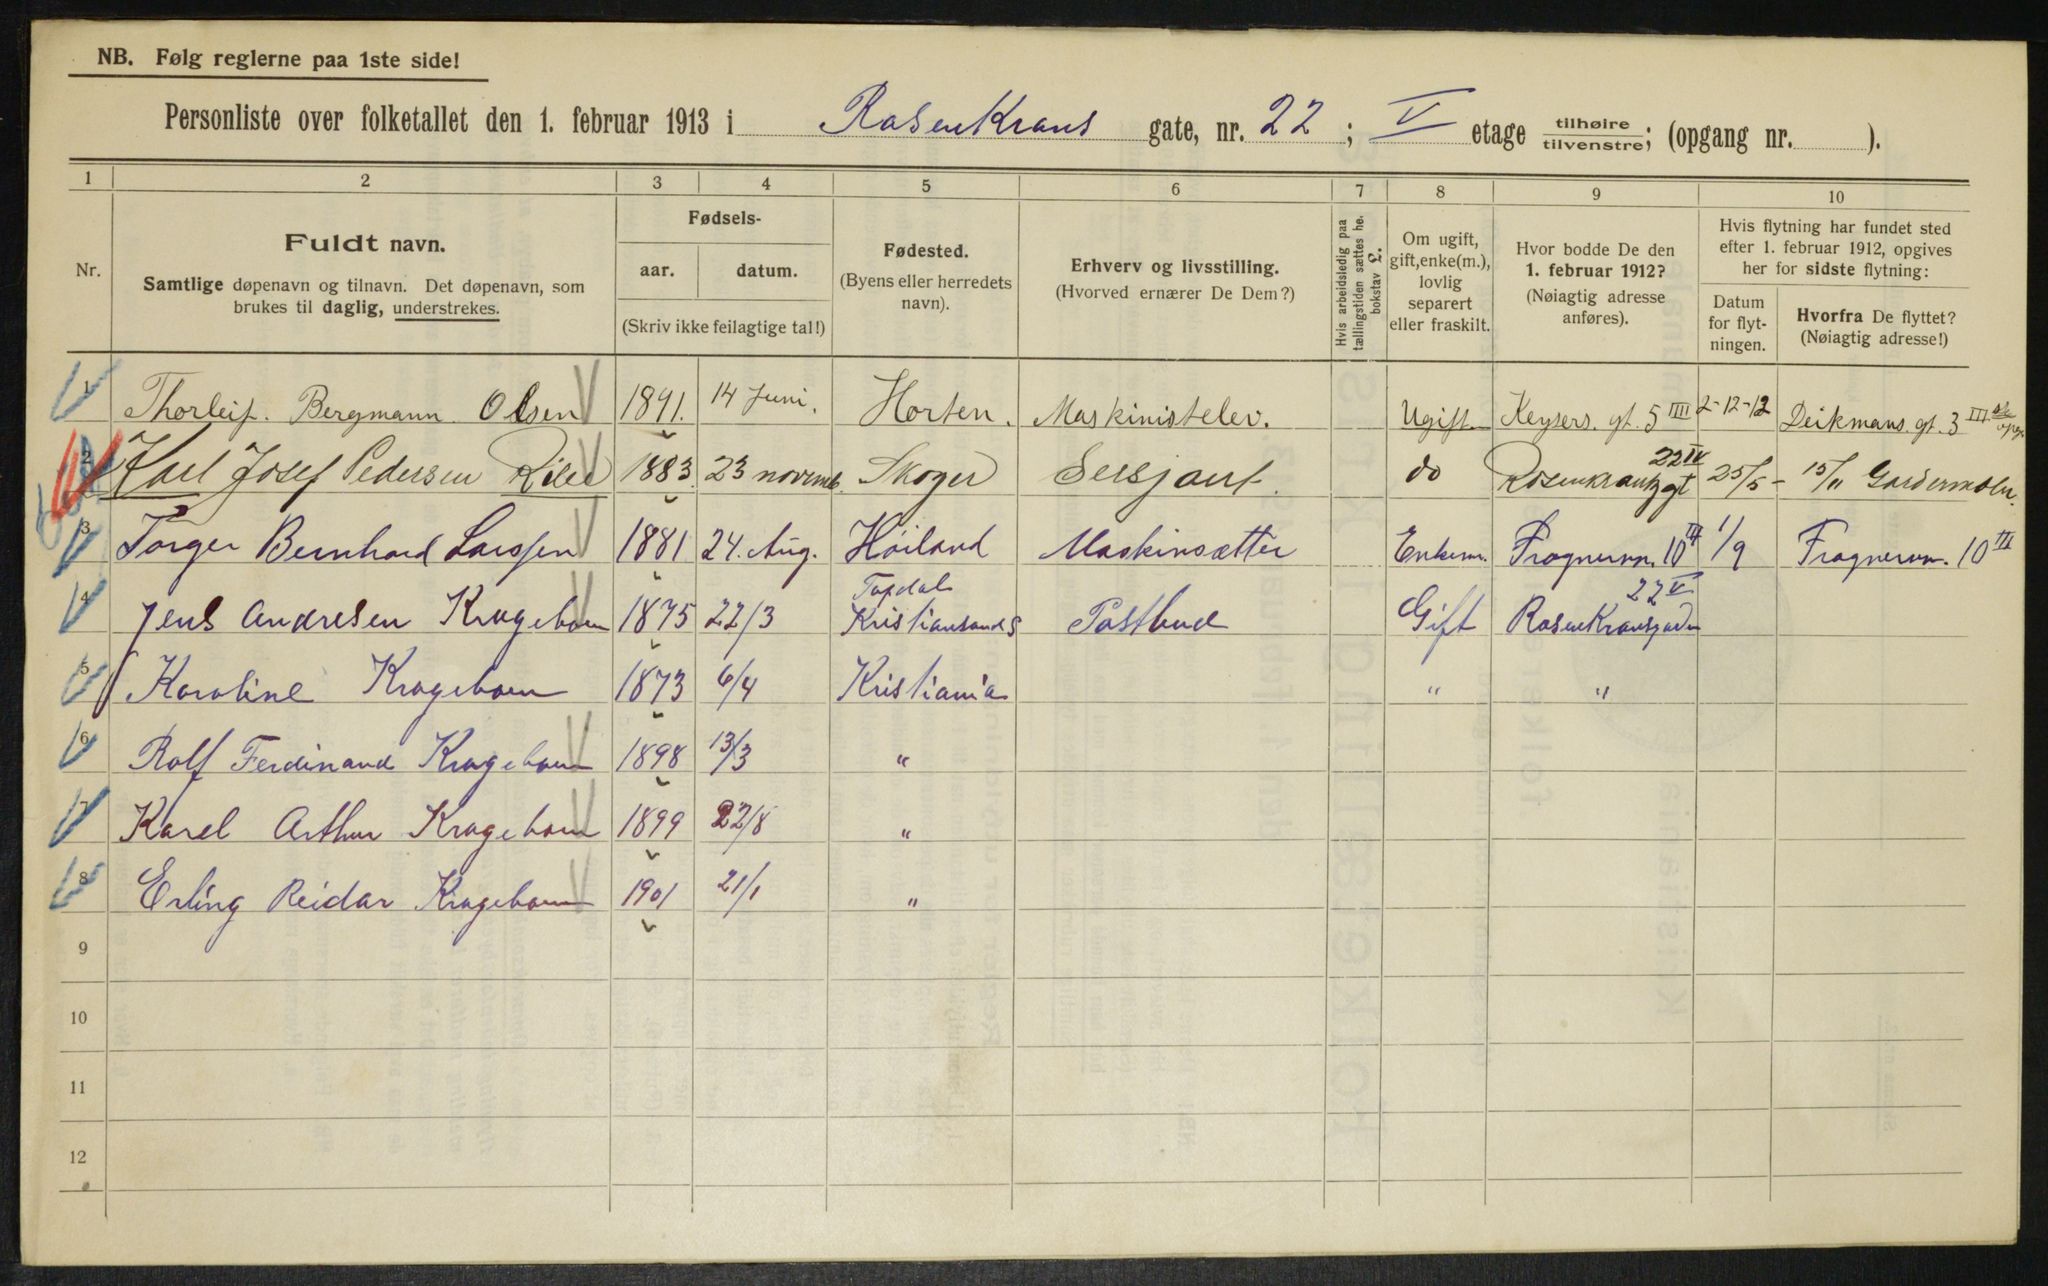 NB. Følg reglerne paa 1ste side!
Personliste over folketallet den 1. februar 1913 i RosenKrans gate, nr. 22 ; V etage tilhøire/tilvenstre; (opgang nr. ).
1 2 3 4 5 6 7 8 9 10
Nr.
Fuldt navn.
Samtlige døpenavn og tilnavn. Det døpenavn, som
brukes til daglig, understrekes.
Fødsels-
aar. datum.
(Skriv ikke feilagtige tal!)
Fødested.
(Byens eller herredets
navn).
Erhverv og livsstilling.
(Hvorved ernærer De Dem?)
Hvis arbeidsledig paa
tællingstiden sættes her
bokstav L.
Om ugift,
gift, enke(m.),
lovlig
separert
eller fraskilt.
Hvor bodde De den
1. februar 1912?
(Nøiagtig adresse
anføres).
Hvis flytning har fundet sted
efter 1. februar 1912, opgives
her for sidste flytning:
Datum
for flyt-
ningen.
Hvorfra De flyttet?
(Nøiagtig adresse!)
1 Thorleif. Bergmann Olsen 1891. 14 Juni. Horten. Maskinistelev. Ugift. Keysers. gt. 5 IIII 2-12-12 Deikmans. gt. 3 III
2 Karl Josef Pedersen 1883. 23 novemb. Skoger Sersjant. do Rosenkrantzgt 22 IV 25/5 - 15/11 Gardermoen.
3 Torger Bernhard Larssen 1881 24. Aug. Høiland Maskinsætter Enkem. Frognervn. 10 III 1/9 Frognervn. 10 III
4 Jens Andresen Krageboen 1875 22/3 Kristiansands Postbud Gift RosenKransgaden 22 V
5 Karoline Krageboen 1873 6/4 Kristiania " "
6 Rolf Ferdinand Krageboen 1898 13/3 "
7 Karel Arthur Krageboen 1899 22/8 "
8 Erling Reidar Krageboen 1901 21/1 "
9
10
11
12